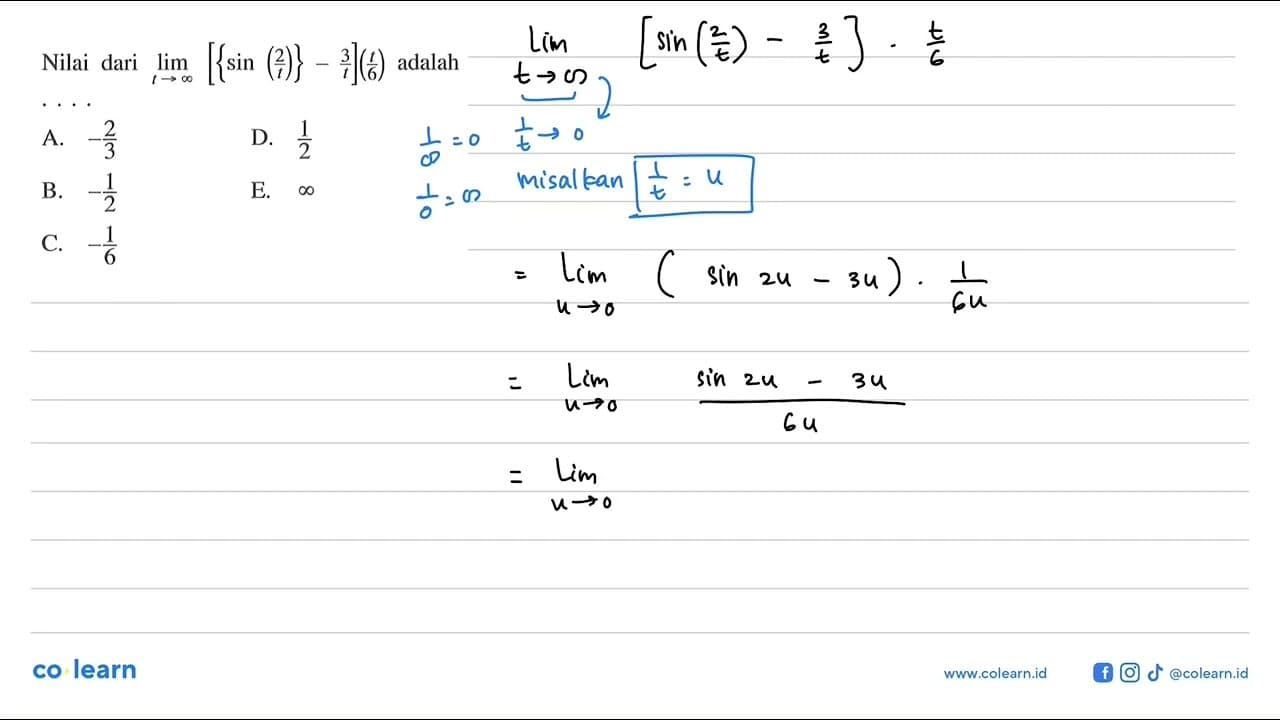 Nilai dari lim t→∞ [{sin (2/t)} – 3/t](t/6) adalah
. . . .
A. –2/3
D. 1/2
B. –1/2
E. ∞
C. –1/6
Lim t→∞ [sin(2/t) – 3/t] . t/6
1/∞ = 0
1/t → 0
1/0 = ∞
misalkan 1/t = u
= Lim u→0 ( sin 2u – 3u ) . 1/6u
= Lim u→0 sin 2u – 3u / 6u
= Lim u→0
co learn
www.colearn.id
@colearn.id